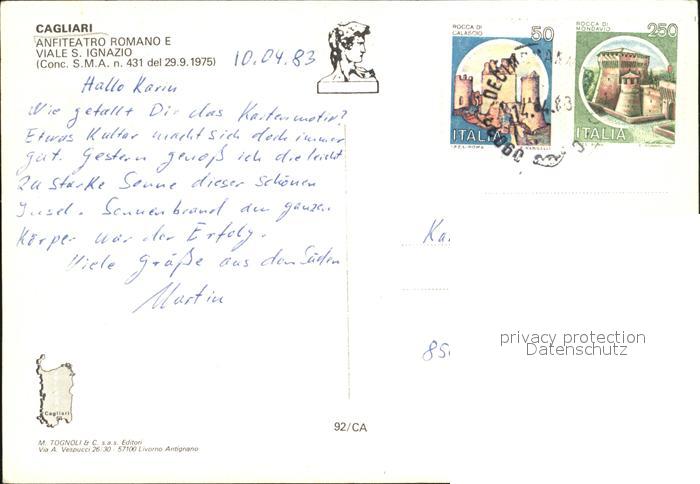 CAGLIARI
ANFITEATRO ROMANO E
VIALE S. IGNAZIO
(Conc. S.M.A. n. 431 del 29.9.1975)
10.04.83
Hallo Karin
Wie gefällt Dir das Kartenmotiv?
Etwas Kultur macht sich doch immer
gut. Gestern genoß ich die leicht
zu starke Sonne dieser schönen
Insel. Sonnenbrand am ganzen
Körper war der Erfolg.
Viele Grüße aus dem Süden
Martin
ROCCA DI
CALASCIO
50
ITALIA
ROCCA DI
MONDAVIO
250
ITALIA
Ka
850
privacy protection
Datenschutz
Cagliari
92/CA
M. TOGNOLI & C. s.a.s. Editori
Via A. Vespucci 26/30 - 57100 Livorno Antignano